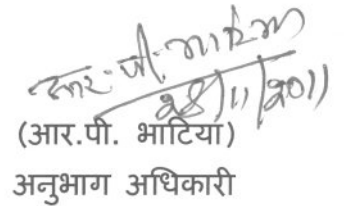 आर. पी. भाटिया
28/11/2011
(आर.पी. भाटिया)
अनुभाग अधिकारी